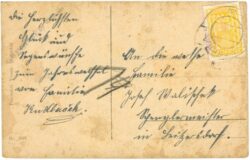 Die herzlichsten
Glück und
Segenswünsche
zum Jahreswechsel
von Familie
An die werte
Familie
Josef
Spenglermeister
in